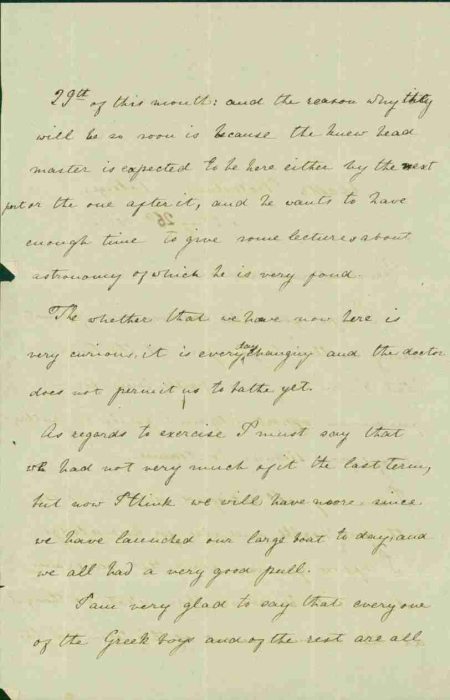 29th of this month: and the reason why they
will be so soon is because the knew head
master is expected to be here either by the next
post or the one after it, and he wants to have
enough time to give some lectures about
astronomy of which he is very fond.
The whether that we have now here is
very curious, it is every day changing and the doctor
does not permit us to bathe yet.
As regards to exercise I must say that
we had not very much of it the last term,
but now I think we will have more since
we have launched our large boat to day, and
we all had a very good pull.
I am very glad to say that everyone
of the Greek boys and of the rest are all